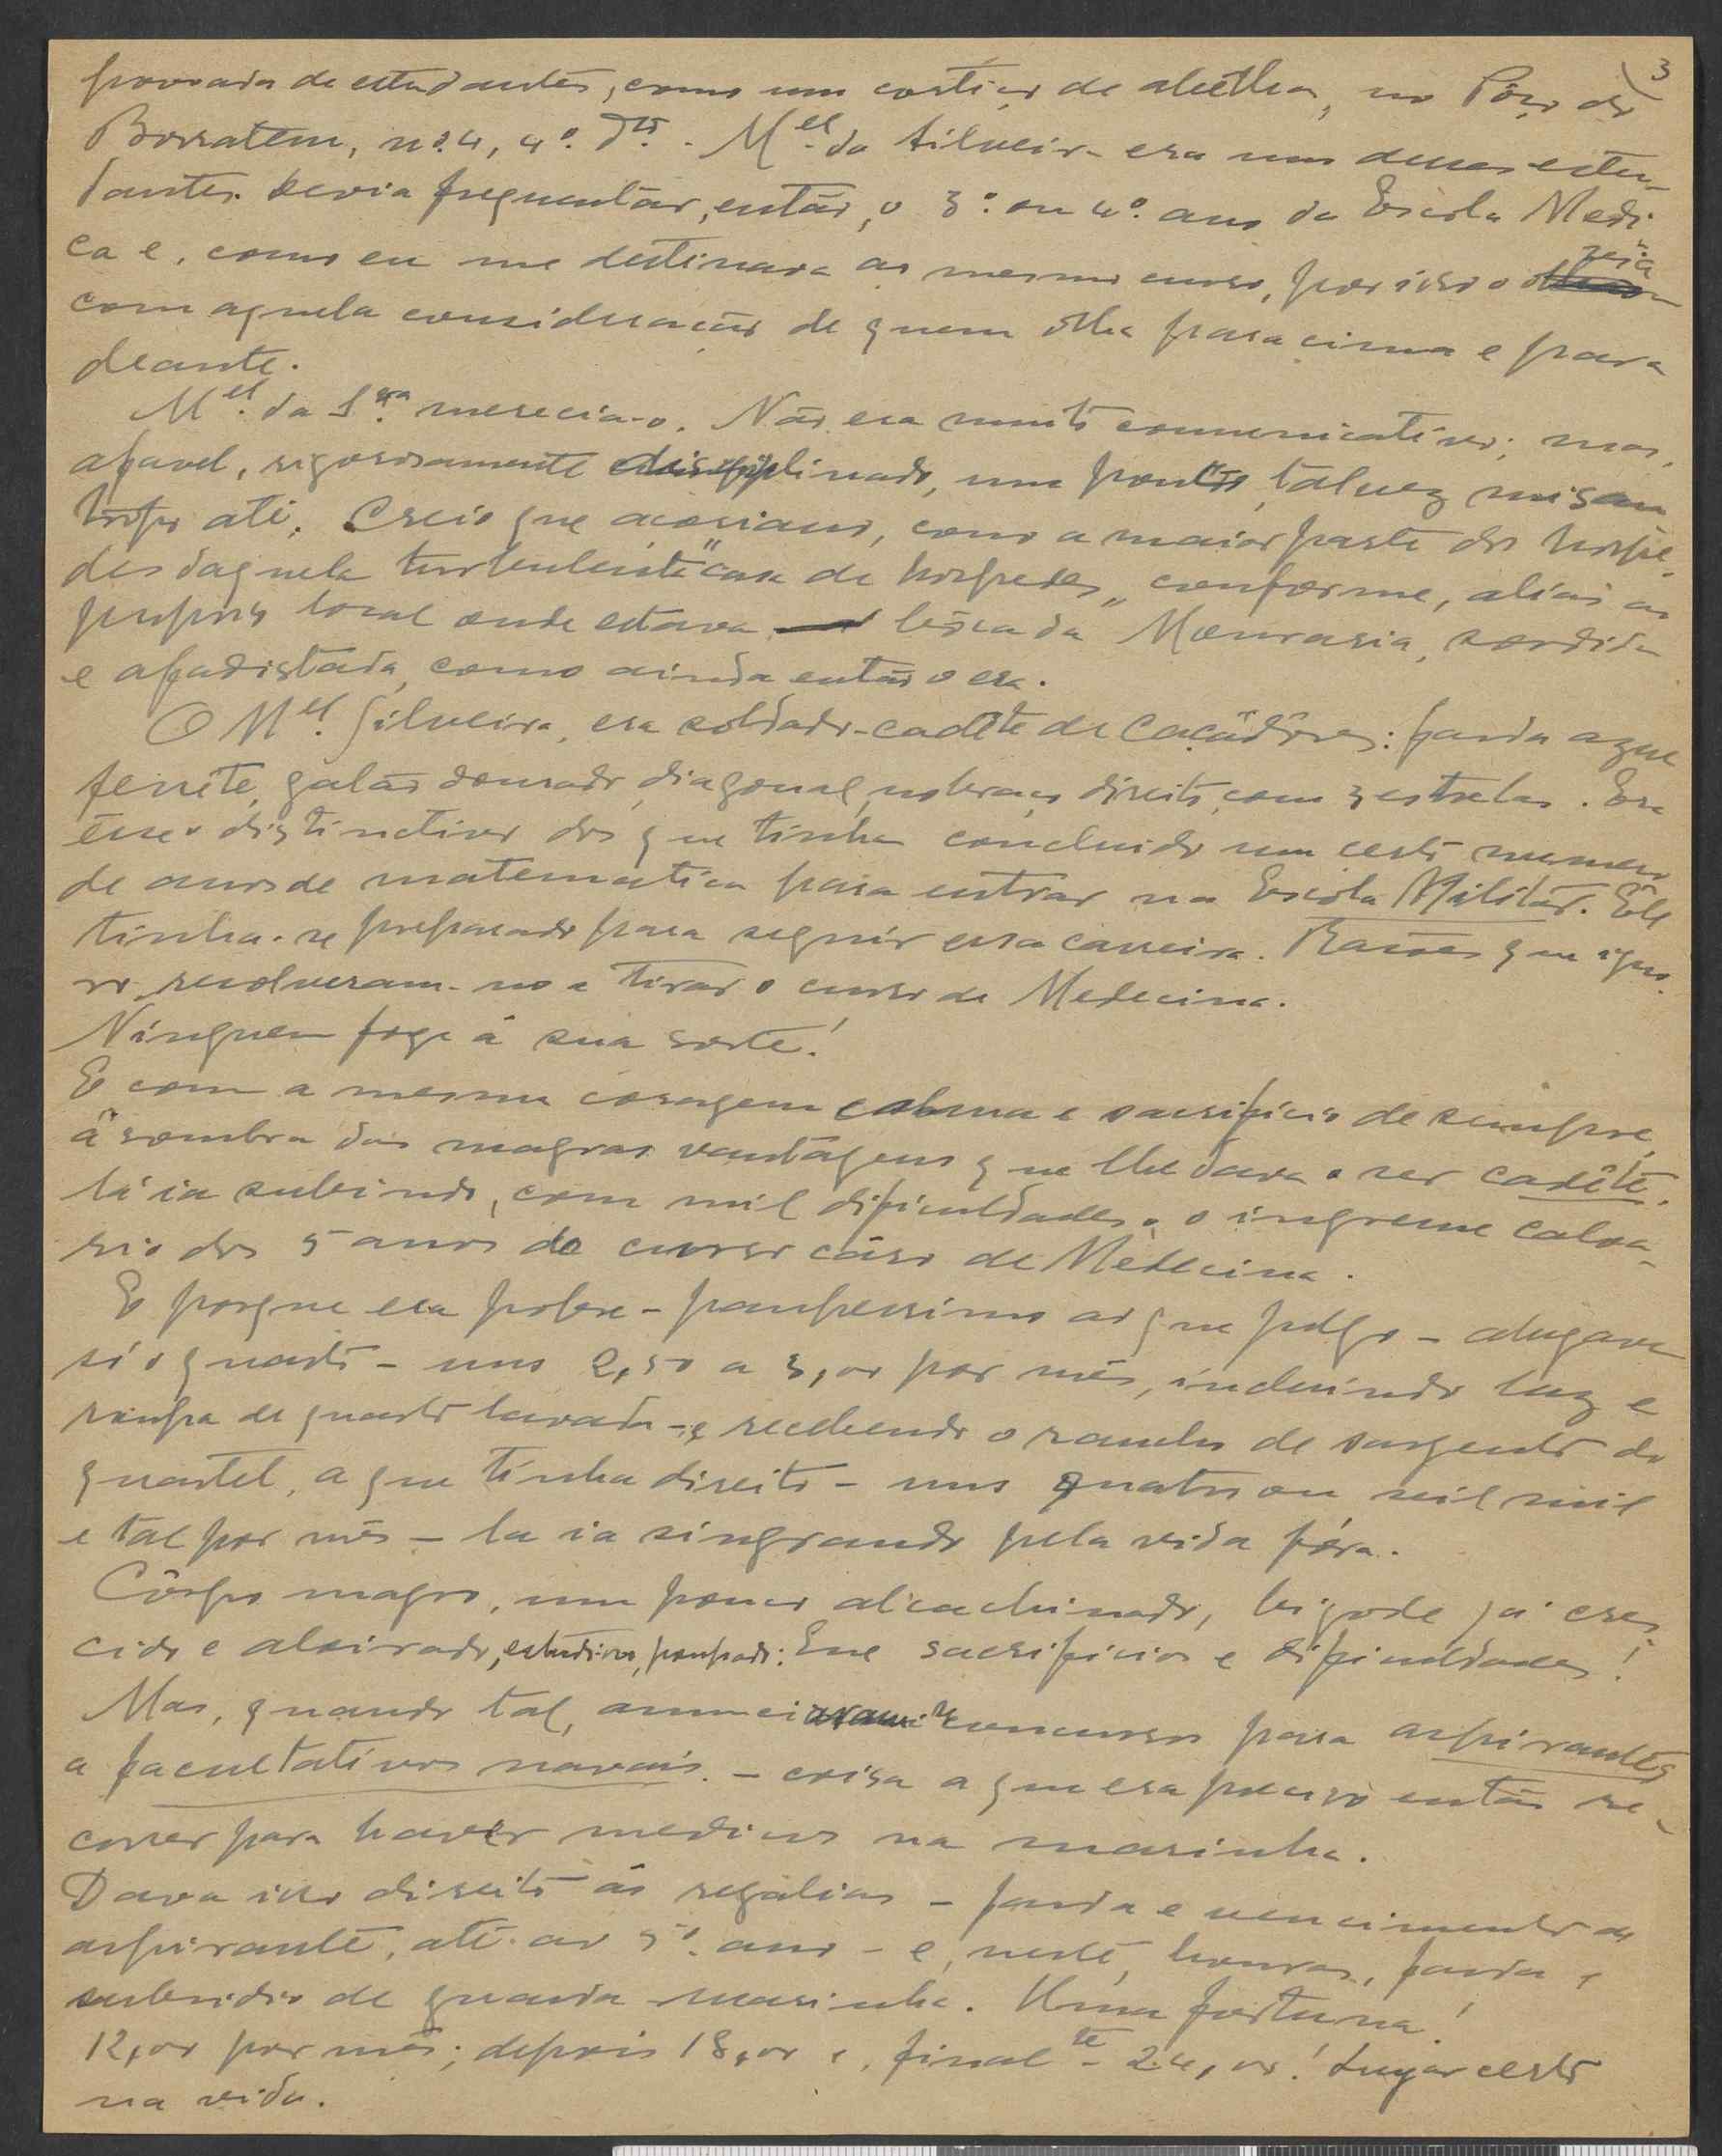 3
povoada de estudantes, como um cortiço de abelhas, no Pôço do
Borratem, nº 4, 4º. Dto. Mel. da Silveira era um desses estu-
dantes. Devia frequentar, então, o 3º. ou 4º. ano da Escola Medi-
ca e, como eu me destinava ao mesmo curso, por isso o
com aquela consideração de quem olha para cima e para
deante.
Mel. da Sra. merecia-o. Não era muito comunicativo; mas,
afavel, rigorosamente disciplinado, um pouco, talvez misan-
tropo até. Creio que açoriano, como a maior parte dos hospe-
des daquela turbulenta "casa de hospedes", conforme, aliás ao
proprio local onde estava, bôca da Mouraria, sordida
e afadistada, como ainda então o era.
O Mel. Silveira, era soldado-cadête de Caçadôres: farda azul
ferrete, galão dourado, diagonal, no braço direito, com 3 estrelas. Era
êsse o distinctivo dos que tinha concluido um certo numero
de anos de matematica para entrar na Escola Militar. Êle
tinha-se preparado para seguir essa carreira. Razões que igno-
ro, resolveram-no a tirar o curso de Medecina.
Ninguem foge á sua sorte!
E com a mesma coragem calma e sacrificio de sempre,
á sombra das magras vantagens que lhe dava o ser cadête,
lá ia subindo, com mil dificuldades, o ingreme calva-
rio dos 5 anos do curso cáro de Medecina.
E porque era pobre - pauperrimo ao que julgo - alugava
só o quarto - uns 2,50 a 3,00 por mês, incluindo luz e
roupa de quarto lavada - e recebendo o rancho de sargento do
quartel, a que tinha direito - uns quatro ou seis mil
e tal por mês - la ia singrando pela vida fóra.
Côrpo magro, um pouco alcachinado, bigode já cres-
cido e aloirado, estudioso, poupado: Ene sacrificios e dificuldades!
Mas, quando tal, anunciaram concurso para aspirantes
a facultativos navais - coisa a que era preciso então re-
correr para haver medicos na marinha.
Dava isso direito ás regalias - farda e vencimento de
aspirante, até ao 5º. ano - e, neste, honras, farda e
subsidio de guarda marinha. Uma fortuna!
12,00 por mês; depois 18,00 e, finalte - 24,00! Lugar certo
na vida.